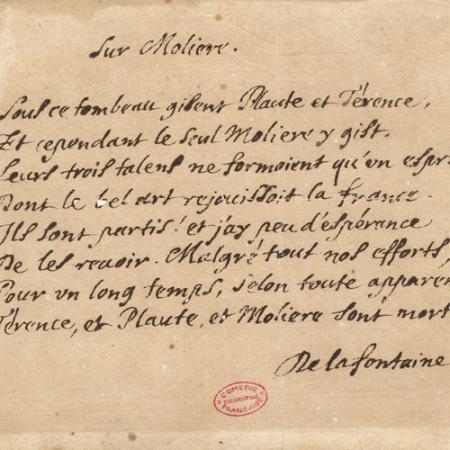 Sur Moliere.
Sous ce tombeau gisent Plaute et Térence,
Et cependant le seul Moliere y gist.
Leurs trois talens ne formoient qu'un espr
Dont le bel art rejouissoit la france.
Ils sont partis! et j'ay peu d'espérance
De les revoir. Malgré tout nos efforts,
Pour un long temps, selon toute apparen
Térence, et Plaute, et Moliere sont mort
De la fontaine
COMEDIE
FRANÇAISE